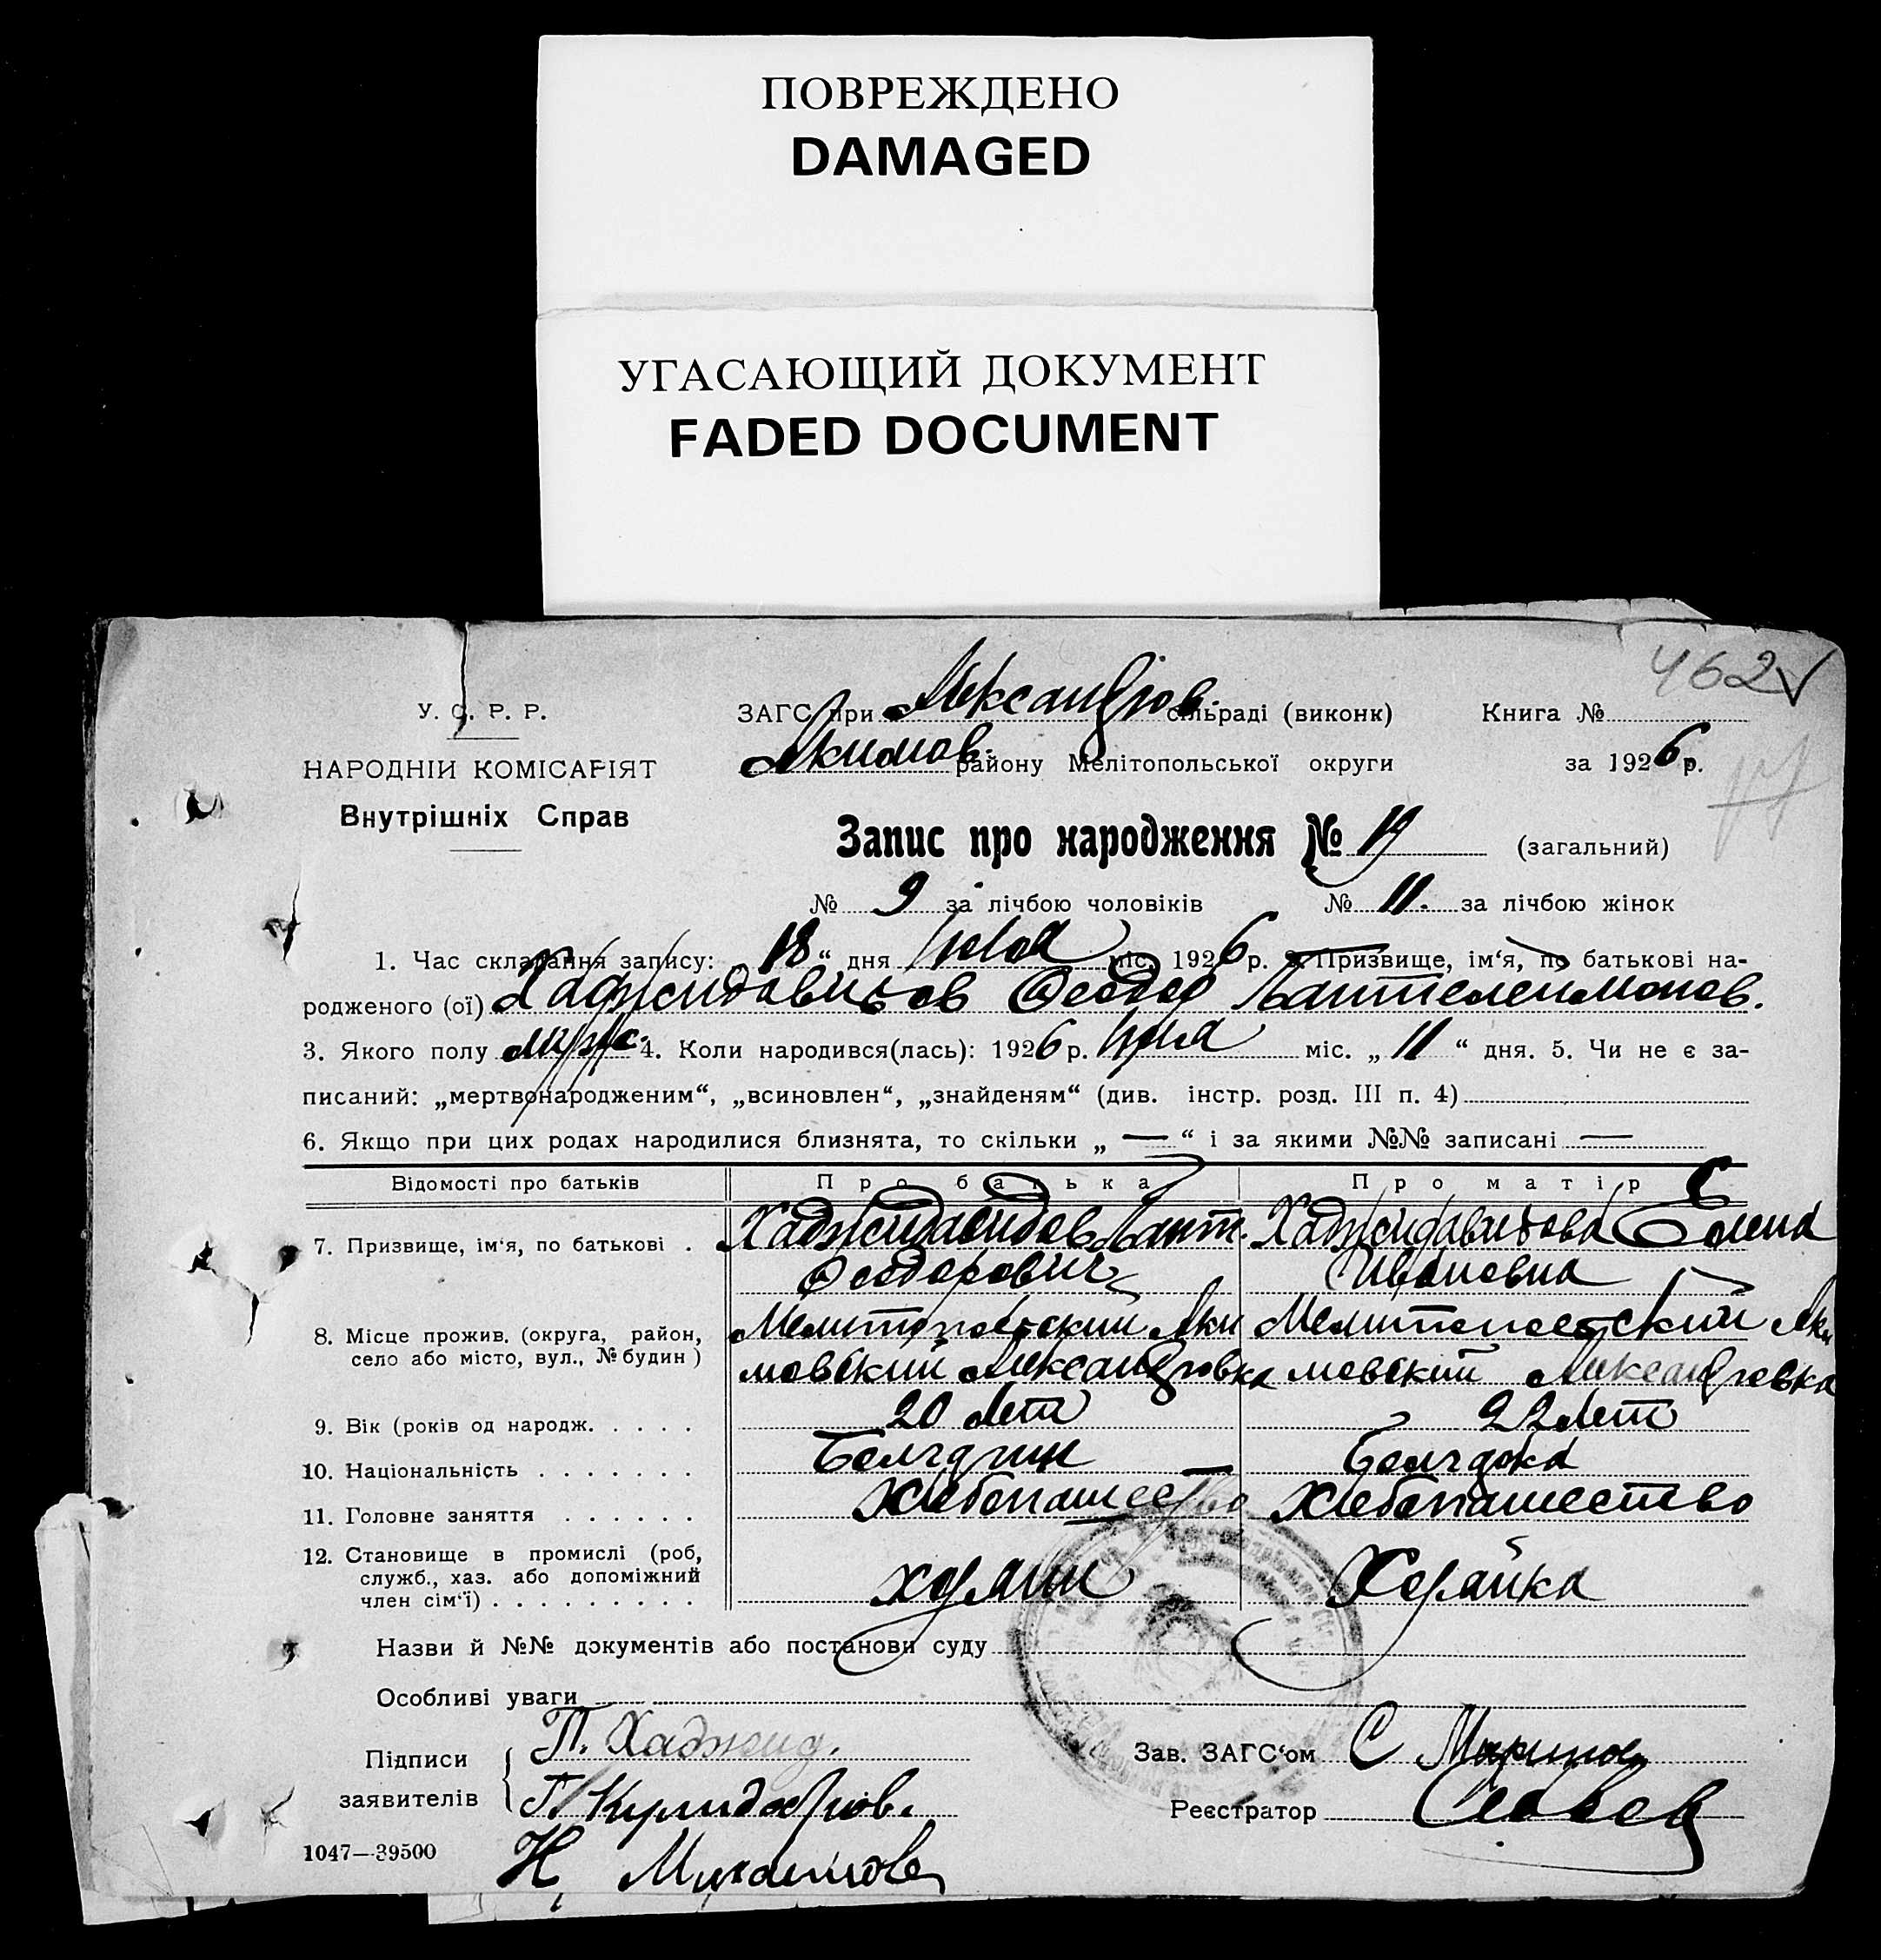 ПОВРЕЖДЕНО
DAMAGED
УГАСАЮЩИЙ ДОКУМЕНТ
FADED DOCUMENT
462
У. С. Р. Р.
НАРОДНІЙ КОМІСАРІЯТ
Внутрішніх Справ
ЗАГС при Александров. сільраді (виконк) Книга №
Акимов. району Мелітопольської округи за 1926 р.
Запис про народження № 19 (загальний)
№ 9 за лічбою чоловіків № 11. за лічбою жінок
1. Час складання запису: 18 “ дня Июля міс. 1926 р. 2. Призвище, ім‘я, по батькові на-
родженого (ої) Хаджидавидов Феодор Пантелеимонов.
3. Якого полу муж. 4. Коли народився(лась): 1926 р. Июля міс. „ 11 “ дня. 5. Чи не є за-
писаний: „мертвонародженим“, „всиновлен“, „знайденям“ (див. інстр. розд. III п. 4)
6. Якщо при цих родах народилися близнята, то скільки „ — “ і за якими №№ записані —
Відомості про батьків Про батька Про матір
7. Призвище, ім‘я, по батькові . Хаджидавидов Пант. Хаджидавидова Елена
Феодорович Ивановна
8. Місце прожив. (округа, район, Мелитопольский Аки Мелитопольский Аки
село або місто, вул., № будин) мовский Александровка мовский Александровка
9. Вік (років од народж. . . . . 20 лет 22 лет
10. Національність . . . . . . . Болгарин болгарка
11. Головне заняття . . . . . . Хлебопашество Хлебопашество
12. Становище в промислі (роб,
служб., хаз. або допоміжний хозяин Хозяйка
член сім‘ї) . . . . . . . . .
Назви й №№ документів або постанови суду
Особливі уваги
Підписи П. Хаджид. Зав. ЗАГС‘ом С Маринов
заявителів П. Реєстратор
1047—39500 Н